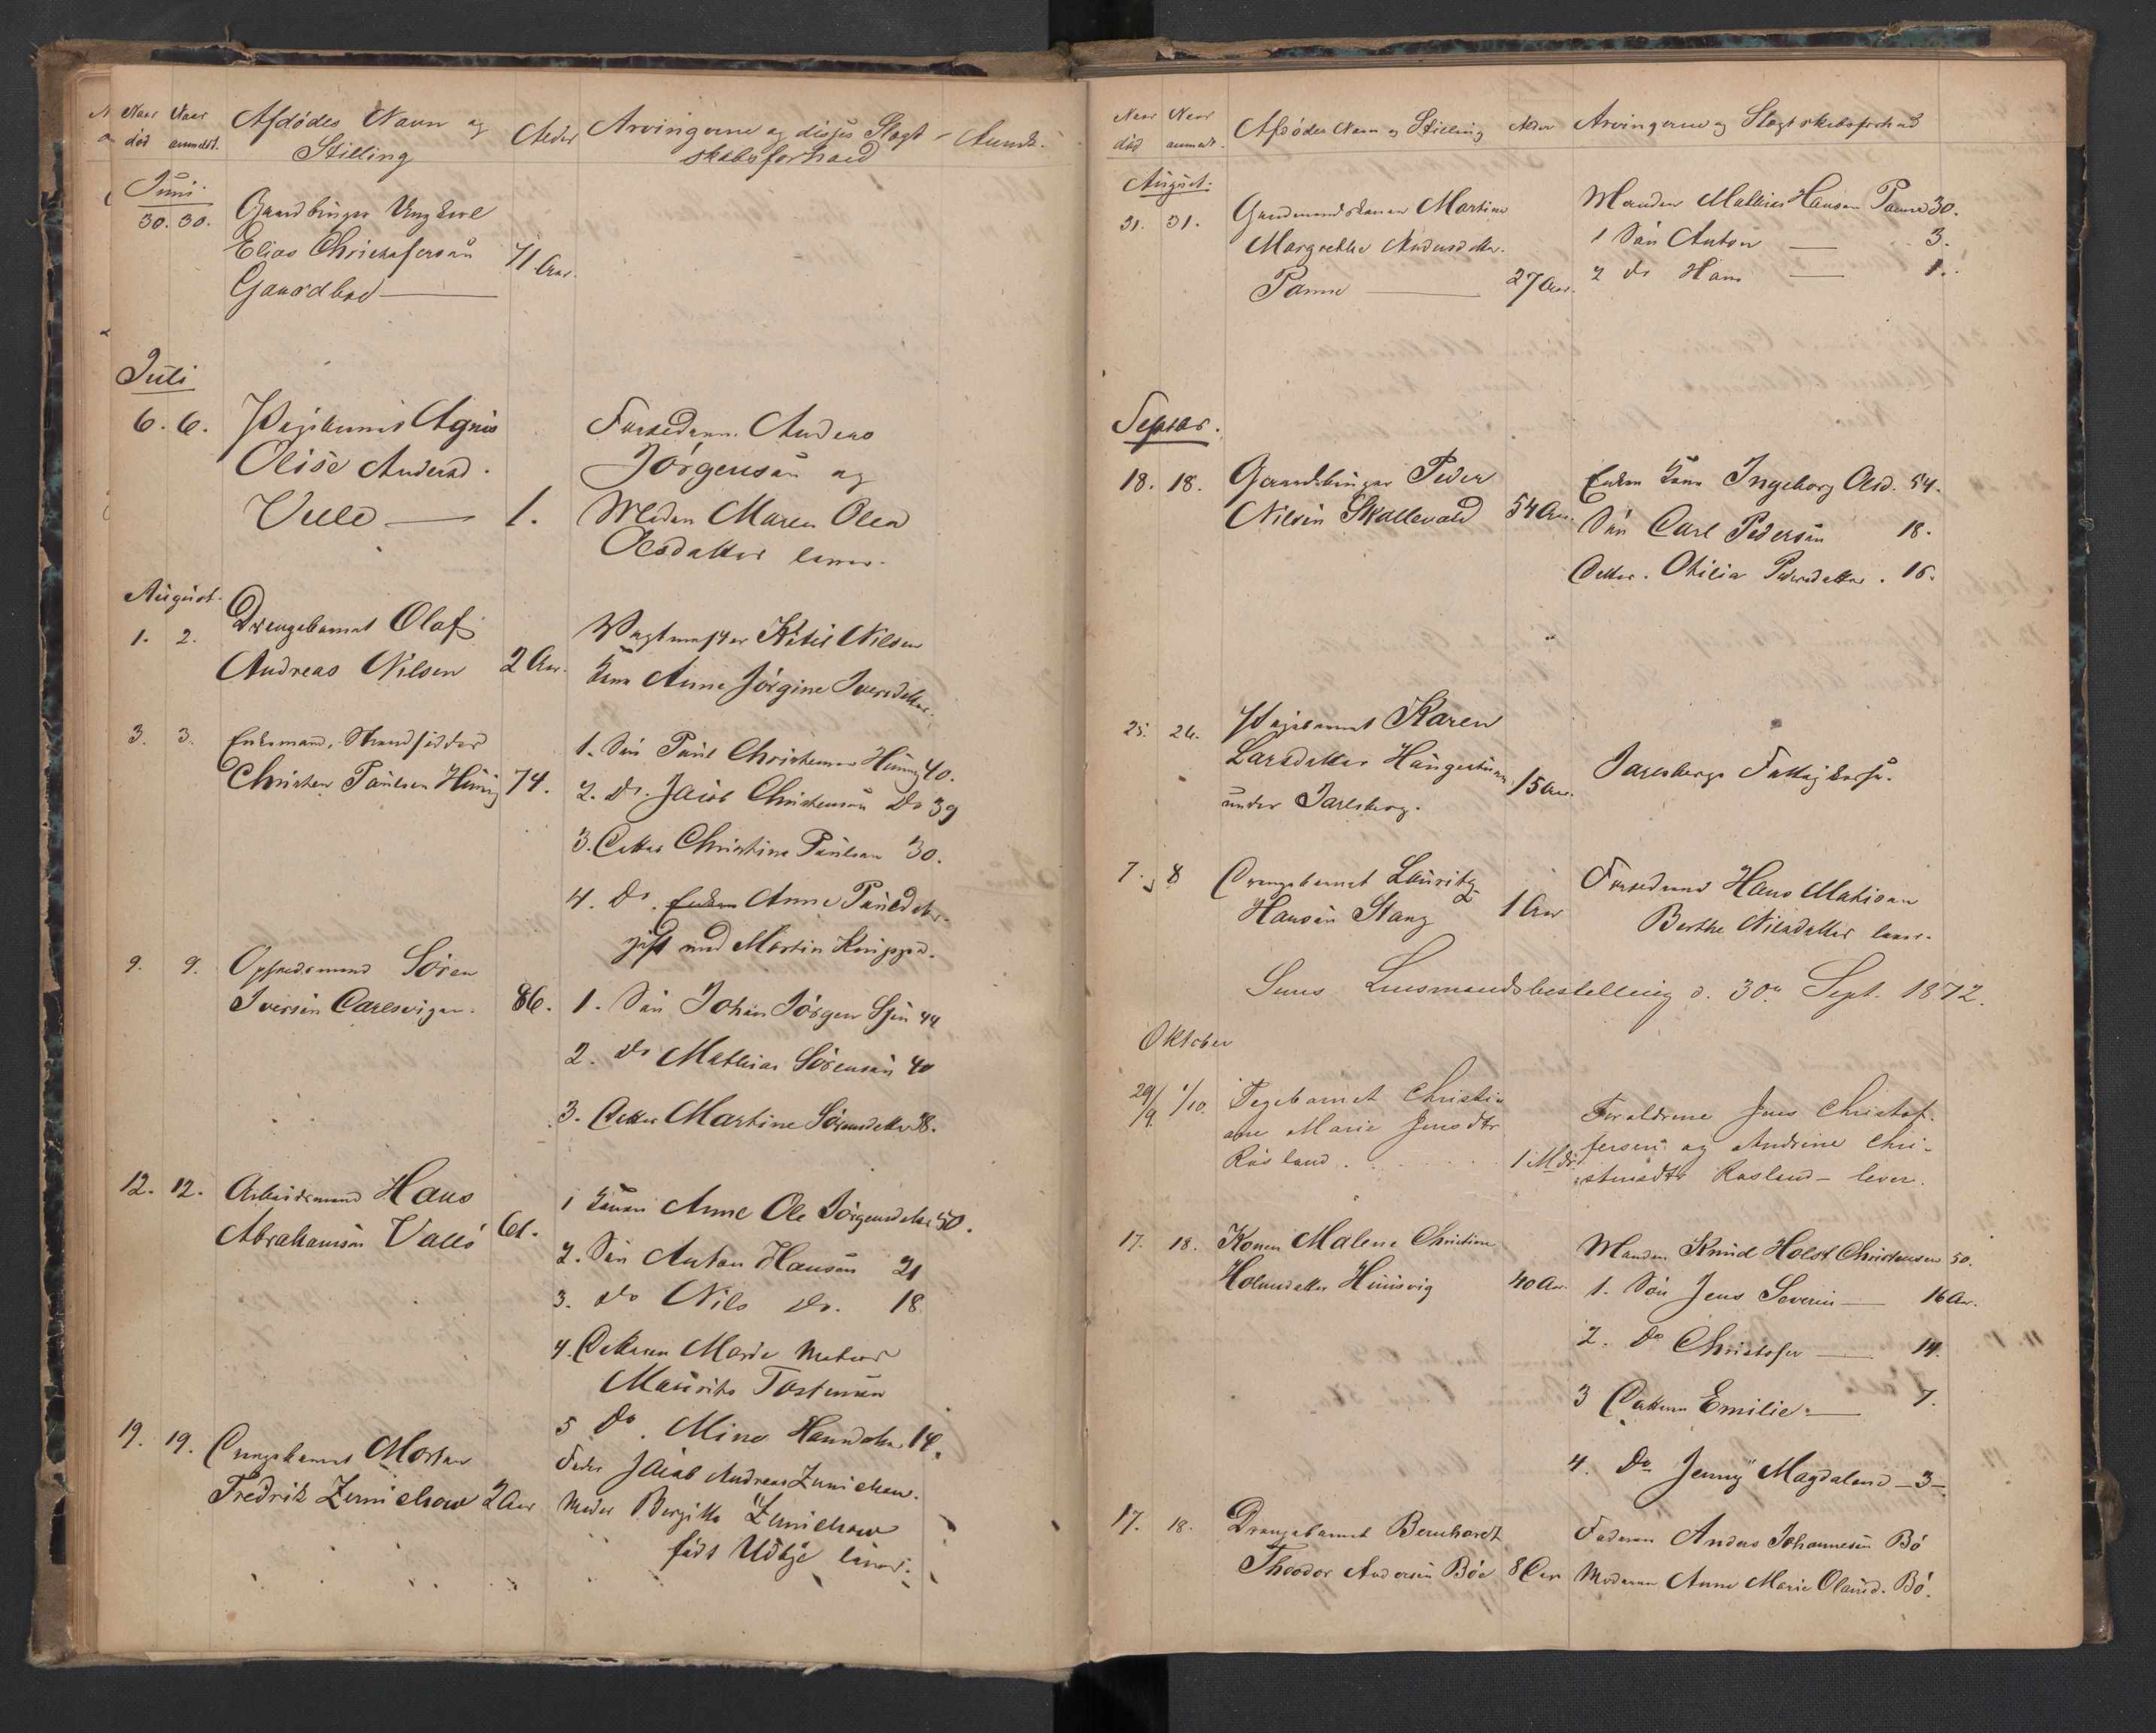 Naar Naar Afdödes Navn og Alder Arvingerne og disses Slægt- Anmk.
död anmeldt. Stilling skabsforhold
Juni
30. 30. Gaardbruger Ungkarl
Elias Christofersen 71 Aar.
Gaardbo
Juli
6. 6. Pigebarnet Agnes
Olise Andersd.
Velle 1.
Forældrene Anders
Jörgensen og
Moder Maren Olea
Olsdatter lever.
August.
1. 2. Drengebarnet Olaf
Andreas Nilsen 2 Aar.
Vagtmester Ketil Nilsen
Kone Anne Jörgine Iversdatter.
3. 3. Enkemand, Strandsidder
Christen Paulsen Huusvig 74.
1. Sön Paul Christensen Huusvig 40.
2. Do. Jacob Christensen Do 39
3. Datter Christine Paulsen 30.
4. Do. Enken Anne Paulsdatter
gift med Martin
9. 9. Opsidermand Sören
Iversen Carlsvigen. 86.
1. Sön Johan Jörgen Sjen 44
2. Do Mathias Sörensen 40
3. Datter Martine Sörensdatter 38.
12. 12. Arbeidsmand Hans
Abrahamsen Vallö 61.
1 Konen Anne Ole Jörgensdatter 50.
2. Sön Anton Hansen 21
3. Do Nils Do. 18
4. Datteren Marie
Maurits Tostensen
5 Do. Mina Hansdatter 14.
19. 19. Drengebarnet Morten
Fredrik Zernichow 2 Aar
Fader Jacob Andreas Zernichow.
Moder Bergitte Zernichow
födt Udbye lever.
Naar Naar Afdödes Navn og Stilling Alder Arvingerne og Slægtskabsforhold
död anmeldt.
August.
31. 31. Gaardmandskonen Martine
Margrethe Andersdatter.
Ramm 27 Aar.
Manden Mathias Hansen Ramm 30.
1 Sön Anton 3.
2 do Hans 1.
Septbr.
18. 18. Gaardbruger Peder
Nilsen Skallevold 54 Aar.
Enken Kone Ingeborg Olsd. 54.
Sön Carl Pedersen 18.
Datter. Othilia Pedersdatter. 16.
25. 26. Pigebarnet Karen
Larsdatter Haugestuen
under Jarlsberg. 15 Aar.
Jarlsbergs Fattigkasse.
7. 8 Drengebarnet Lauritz
Hansen Stang 1 Aar
Forældrene Hans Mathisen
Berthe Nilsdatter lever.
Sems Lensmandsbestilling d. 30te Sept. 1872.
Oktober
29/9. 1/10. Pigebarnet Christi-
ane Marie Jensdtr
Rösland. 1 Mdr.
Foraldrene Jens Christof-
fersen og Andrine Chri-
stensdtr Rösland - lever.
17. 18. Konen Malene Christine
Holmsdatter Huusvig 40 Aar.
Manden Knud Holst Christensen 50.
1. Sön Jens Severin 16 Aar.
2. Do Christofer 14.
3 Datteren Emilie 7.
4. Do Jenny Magdalene - 3 -
17. 18. Drengebarnet Bernhardt
Theodor Andersen Böe 8 Aar
Faderen Anders Johannesen Bö
Moderen Anne Marie Olausd. Bö.